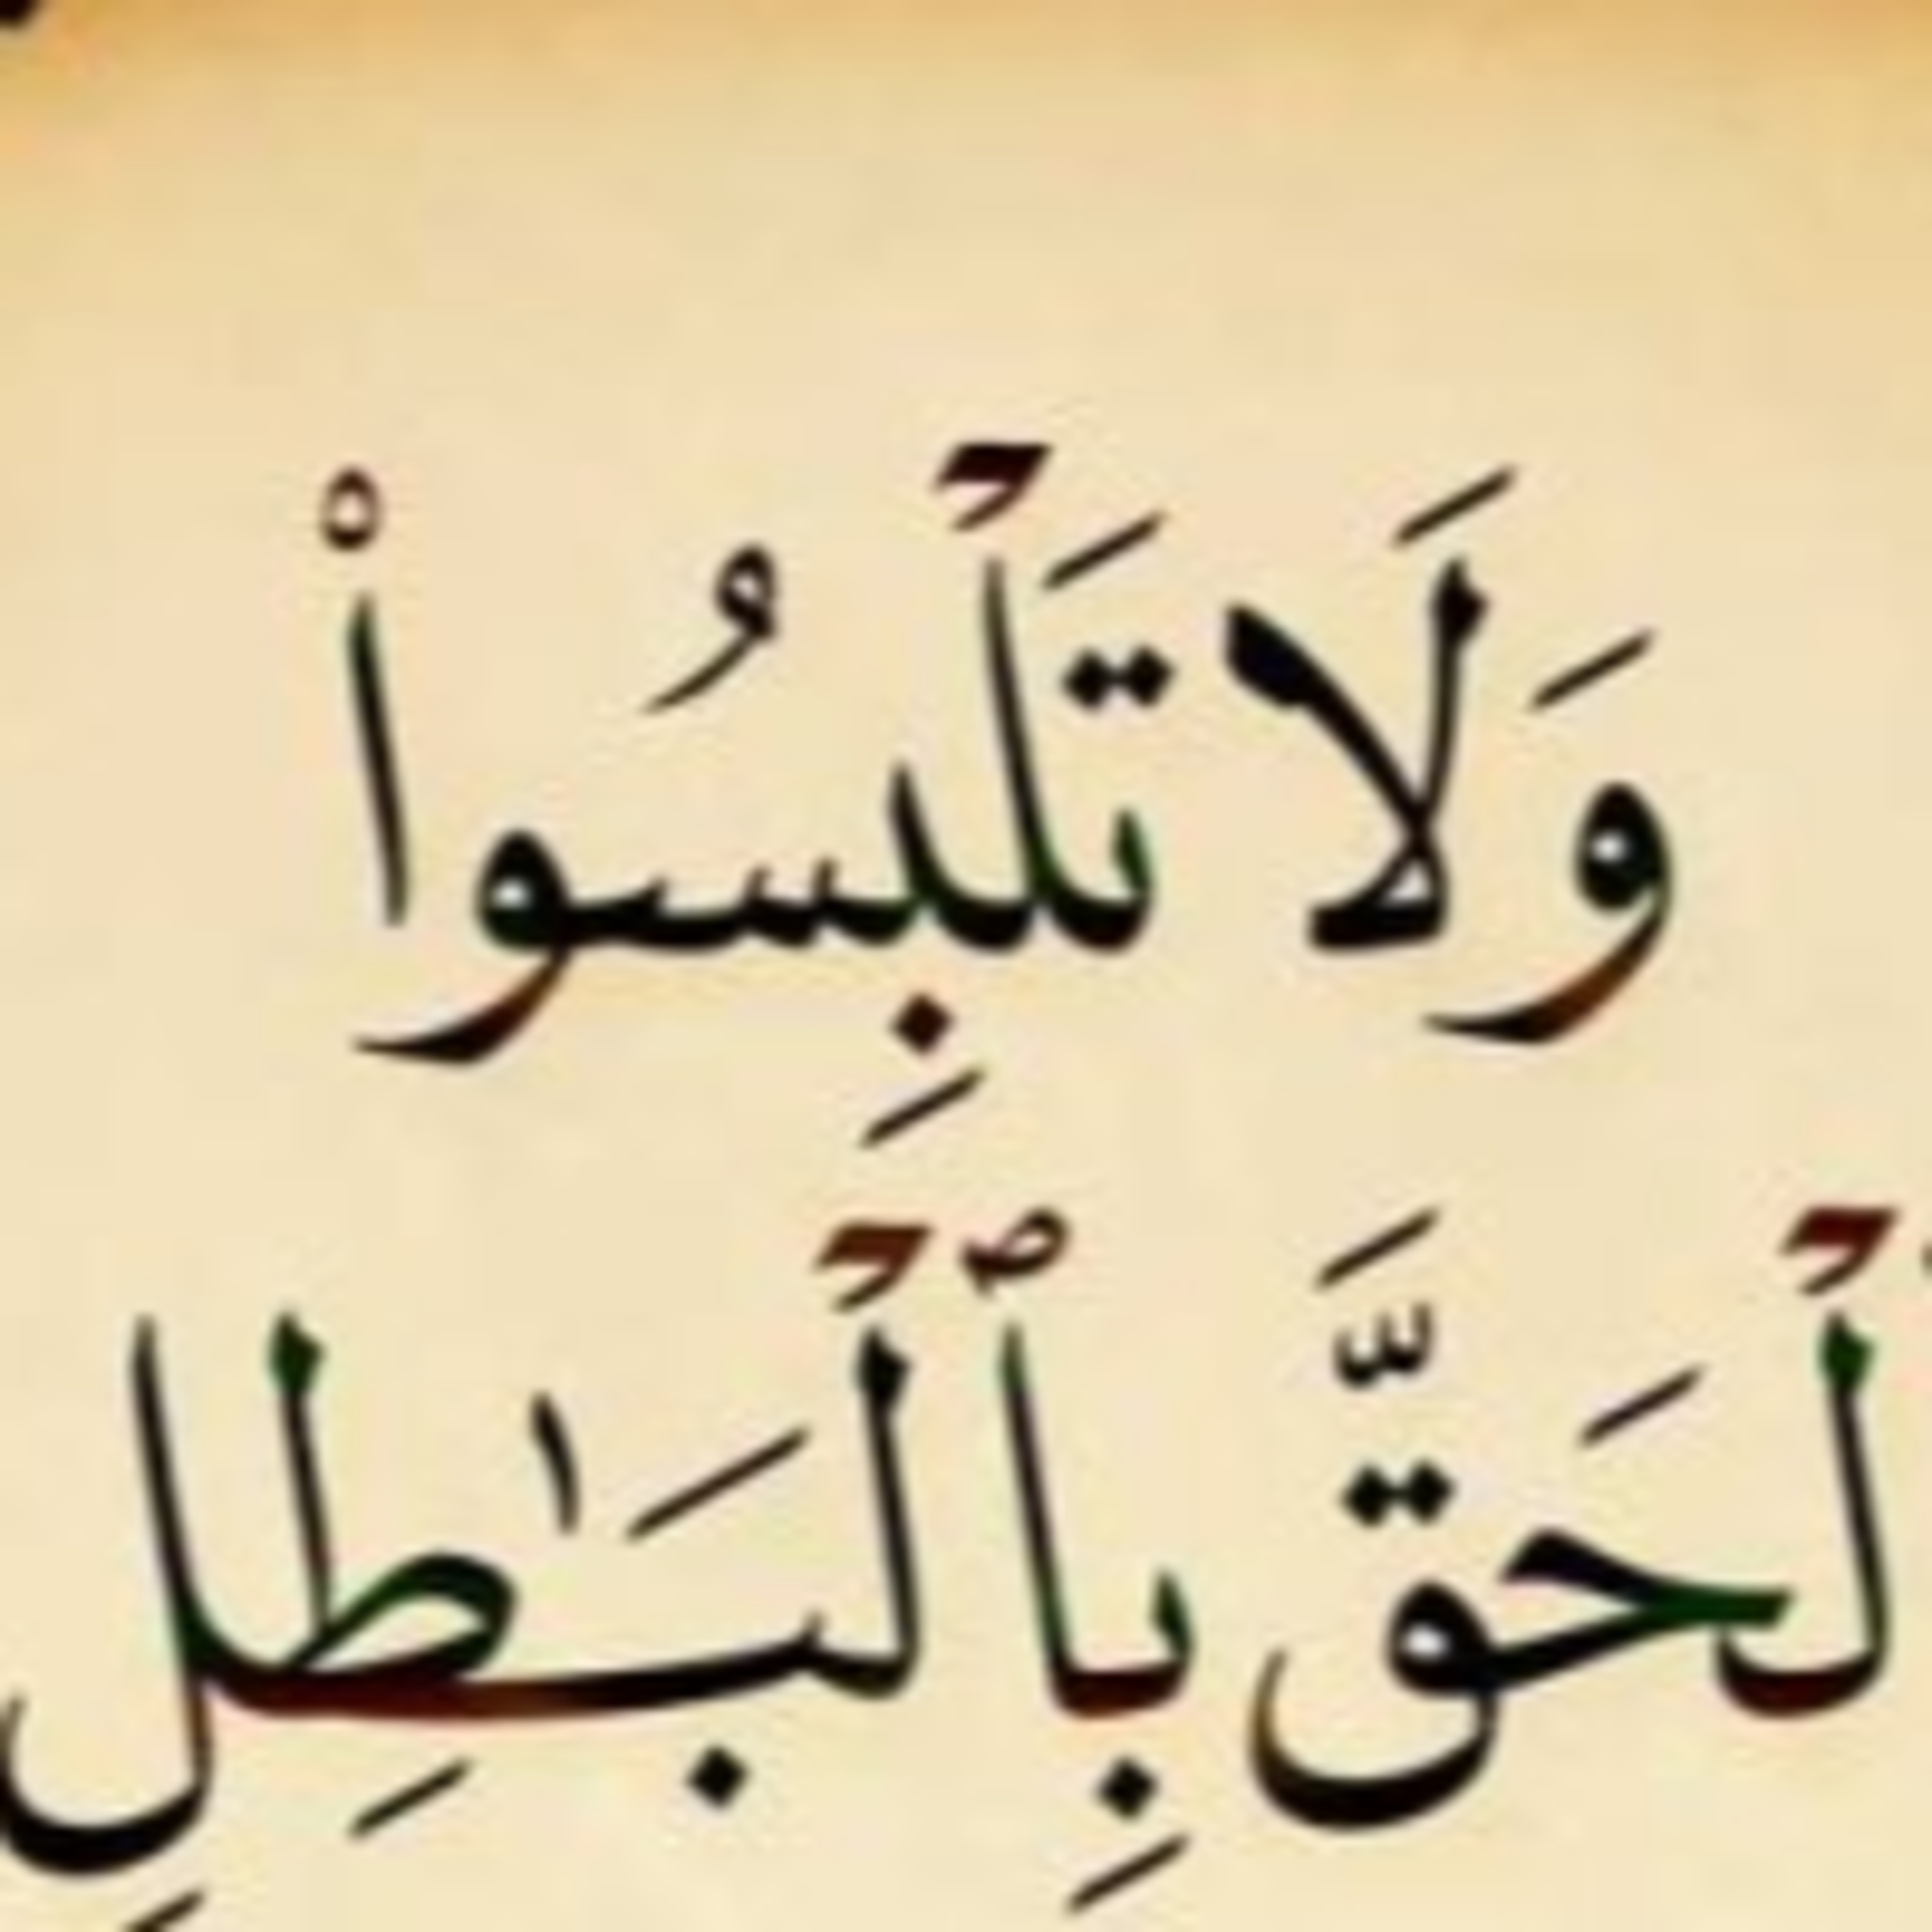 وَلَا تَلْبِسُوا۟
ٱلْحَقَّ بِٱلْبَـٰطِلِ